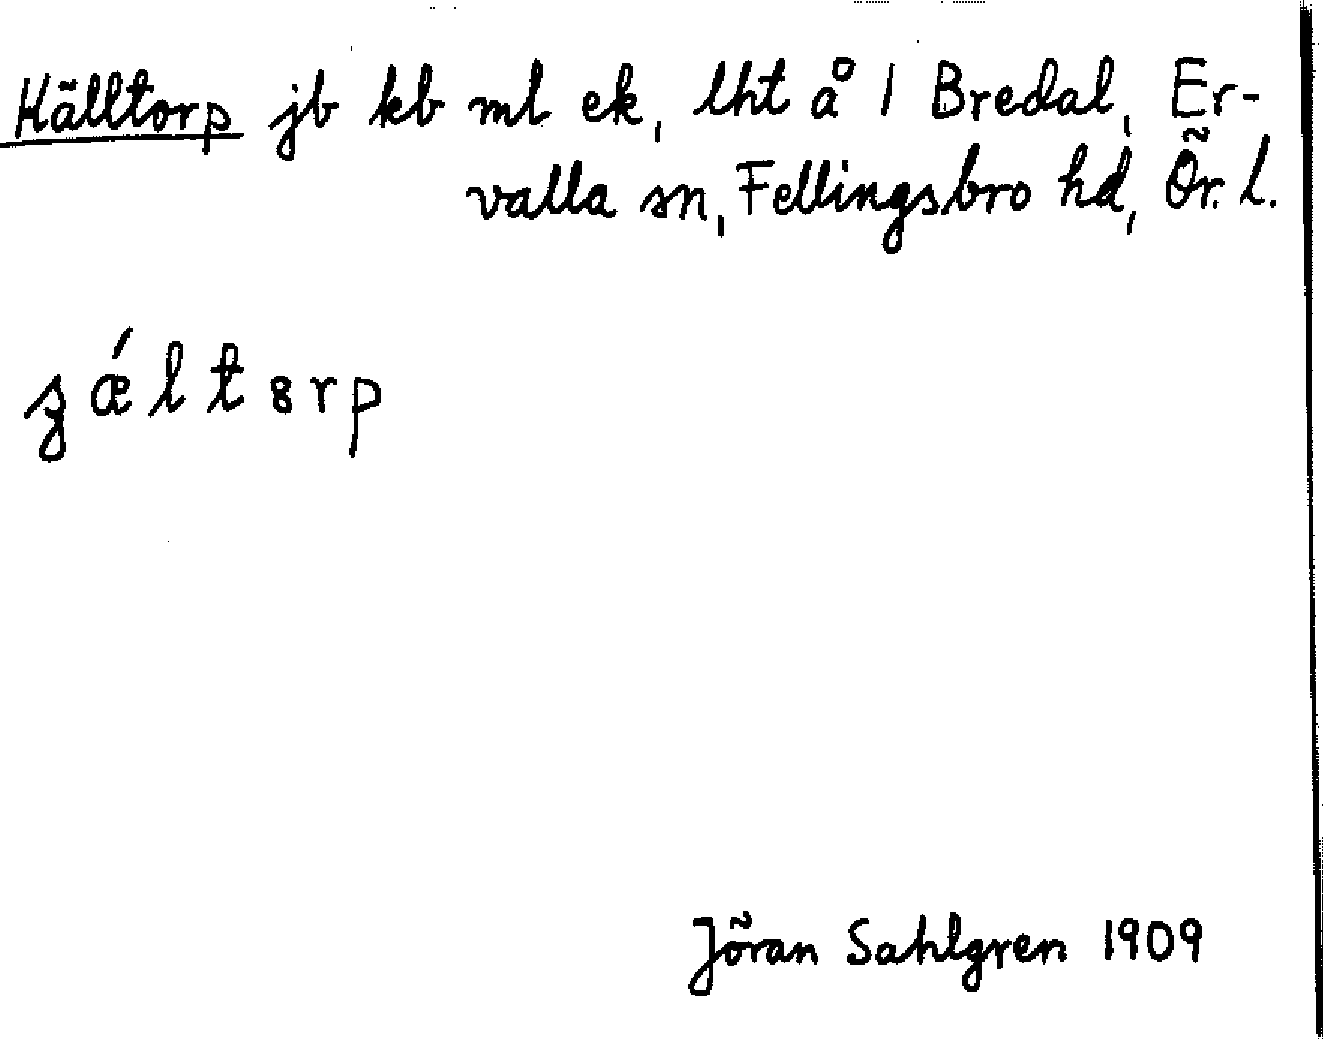 Hälltorp jb kb ml ek, lht å 1 Bredal, Er-
valla sn, Fellingsbro hd, Ör. l.
ʒǽltɞrp
Jöran Sahlgren 1909